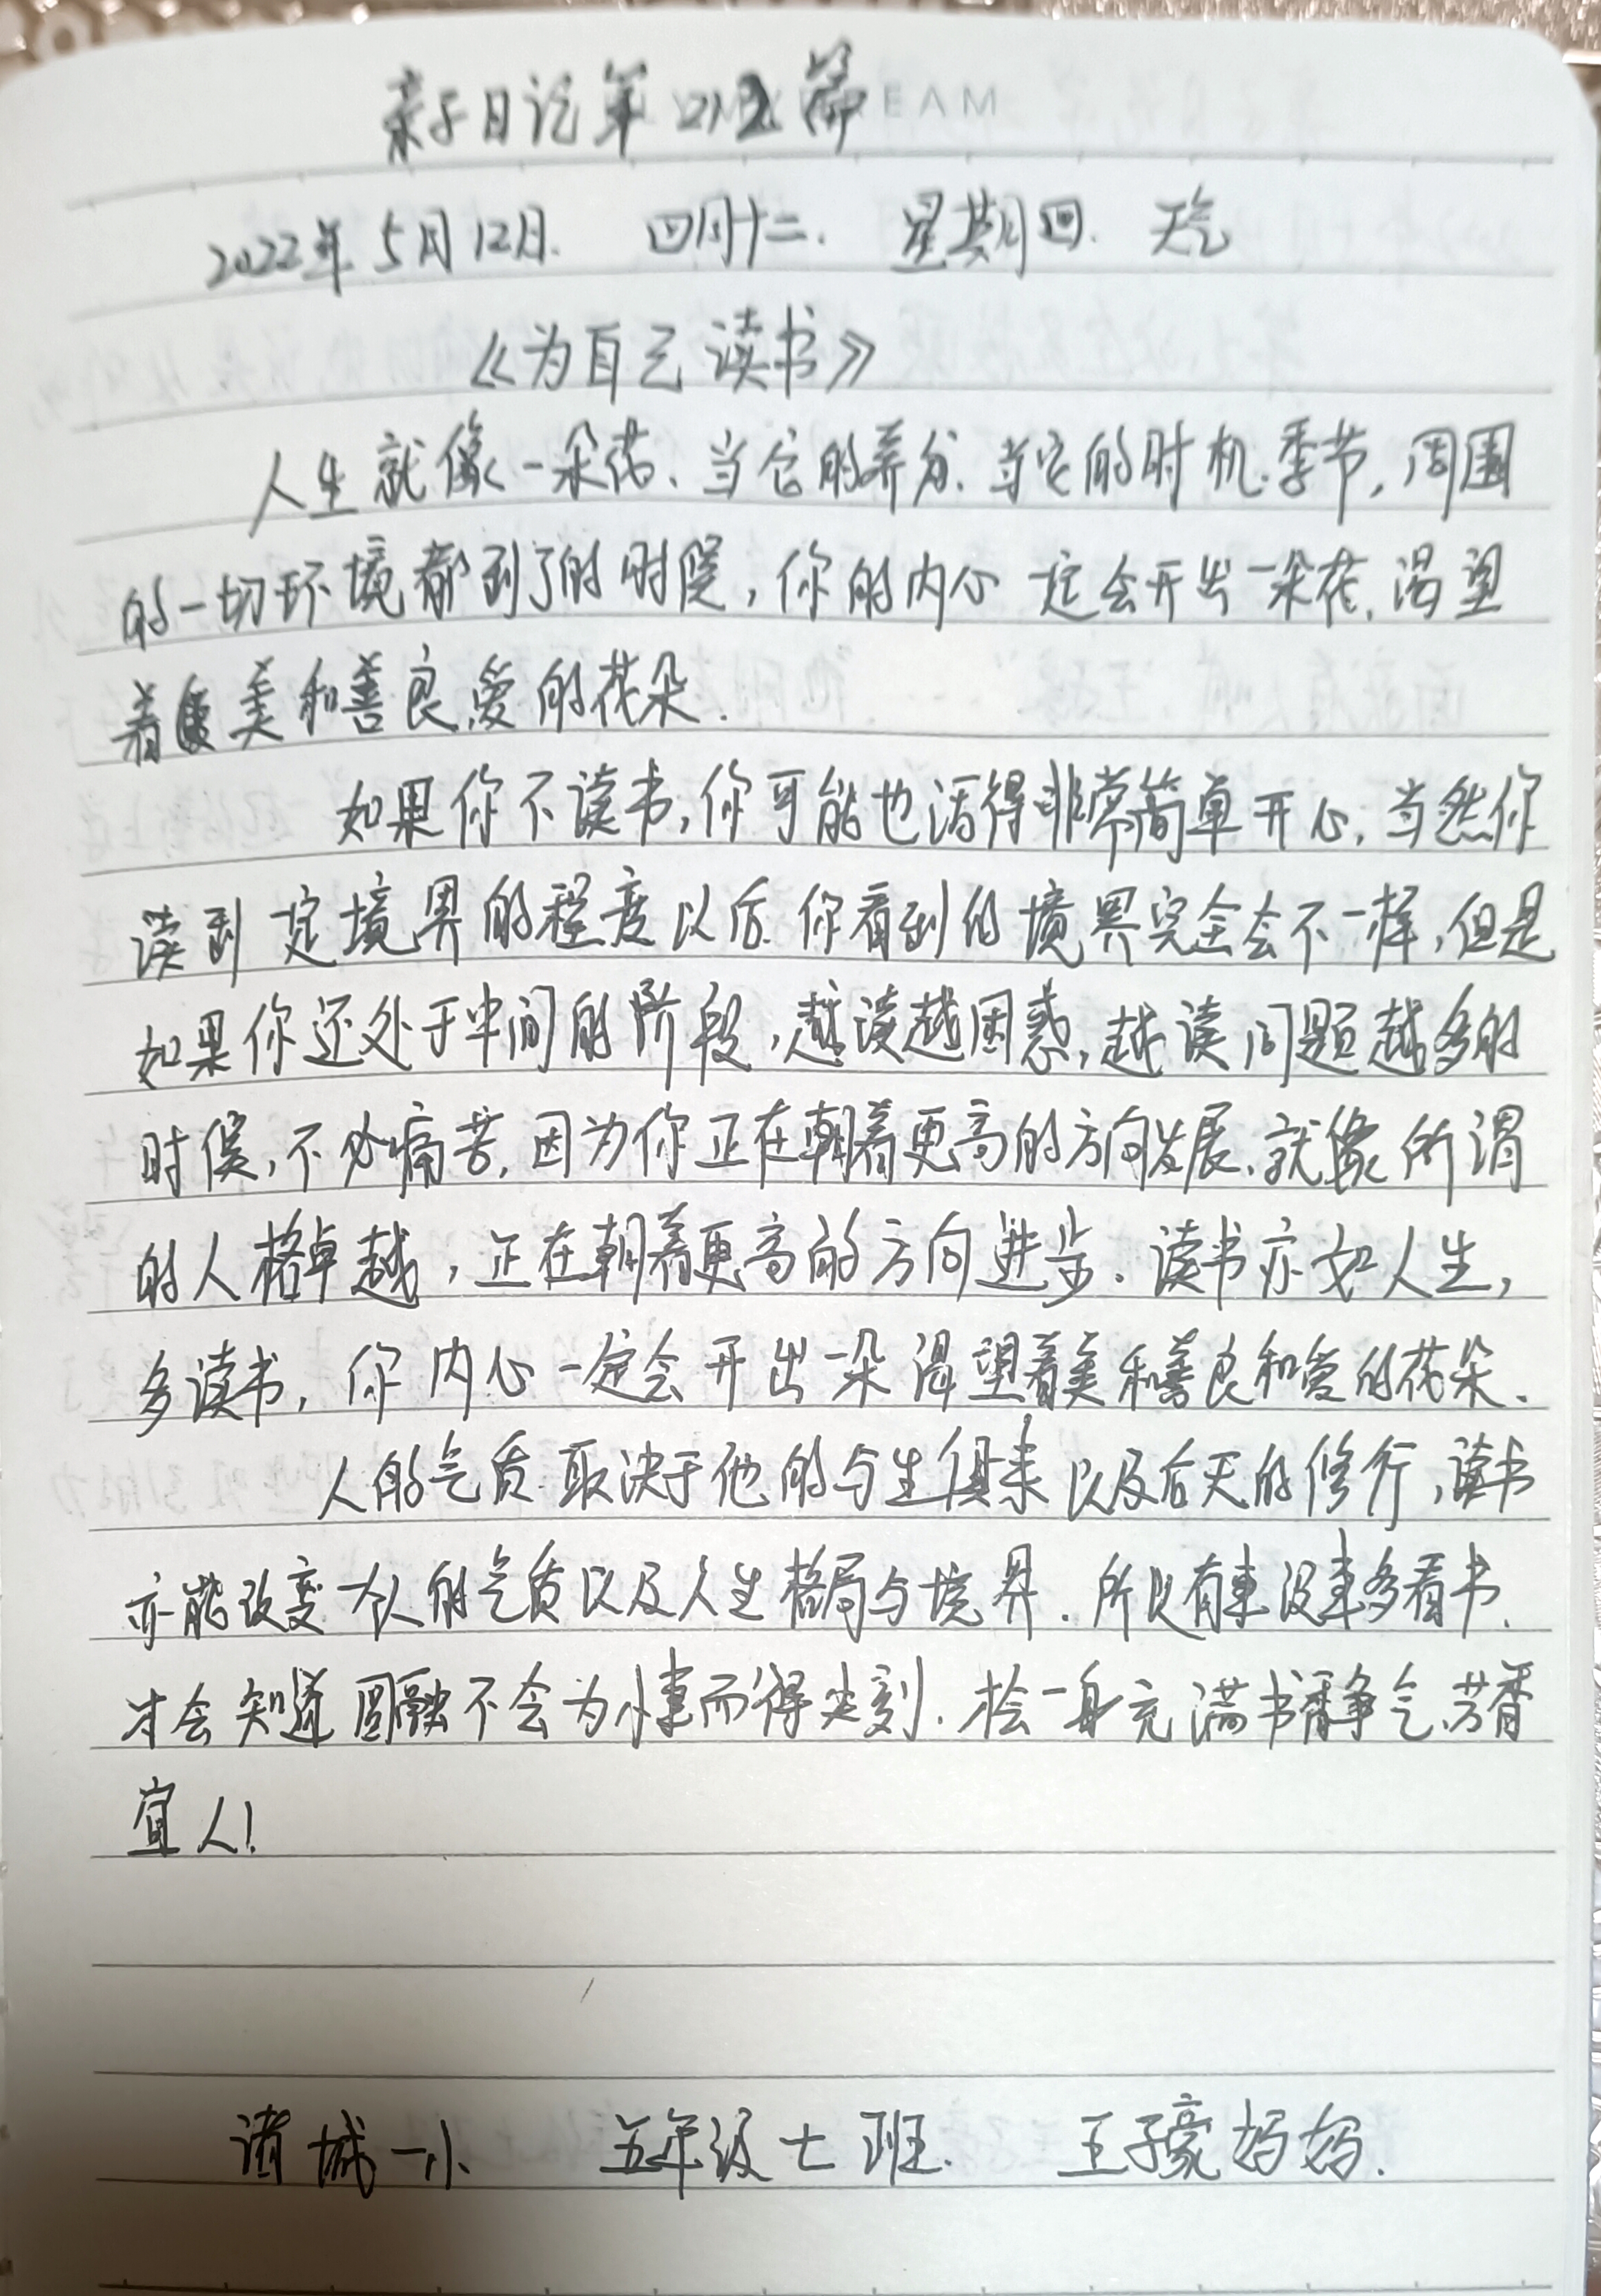 亲子日记第212篇
EAM
2022年5月12日. 四月十二. 星期四. 天气
《为自己读书》
人生就像一朵花、当它的养分、当它的时机.季节,周围
的一切环境都到了的时候,你的内心一定会开出一朵花.渴望
着 美和善良爱的花朵.
如果你不读书,你可能也活得非常简单开心,当然你
读到一定境界的程度以后.你看到的境界完全会不一样,但是
如果你还处于中间的阶段,越读越困惑,越读问题越多的
时候,不必痛苦,因为你正在朝着更高的方向发展、就像所谓
的人格卓越,正在朝着更高的方向进步.读书亦如人生,
多读书,你内心一定会开出一朵渴望着美和善良和爱的花朵.
人的气质.取决于他的与生俱来以及后天的修行,读书
亦能改变一个人的气质以及人生格局与境界.所以有事没事多看书.
才会知道圆融不会为小事而得尖刻. 一身充满书香静气、芳香
宜人!
诸城一小 五年级七班. 王子豪妈妈.